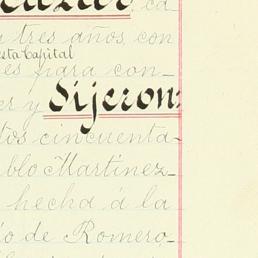 ca
y tres años con
esta Capital
es para con_
er y Dijeron:
tos cincuenta_
blo Martinez_
hecha á la
o de Romero_